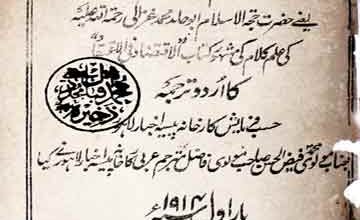 یعنی حضرت حجۃ الاسلام ابو حامد محمد غزالی رحمۃ اللہ علیہ
کی علم کلام کی مشہور کتاب "الاقتصاد فی الاعتقاد"
کا اردو ترجمہ
حسب فرمایش کارخانہ پیسہ اخبار لاہور
جناب مولوی فیض الحسن صاحب مولوی فاضل مترجم عربی کارخانہ پیسہ اخبار لاہور نے کیا
بار اول ۱۹۱۴ء